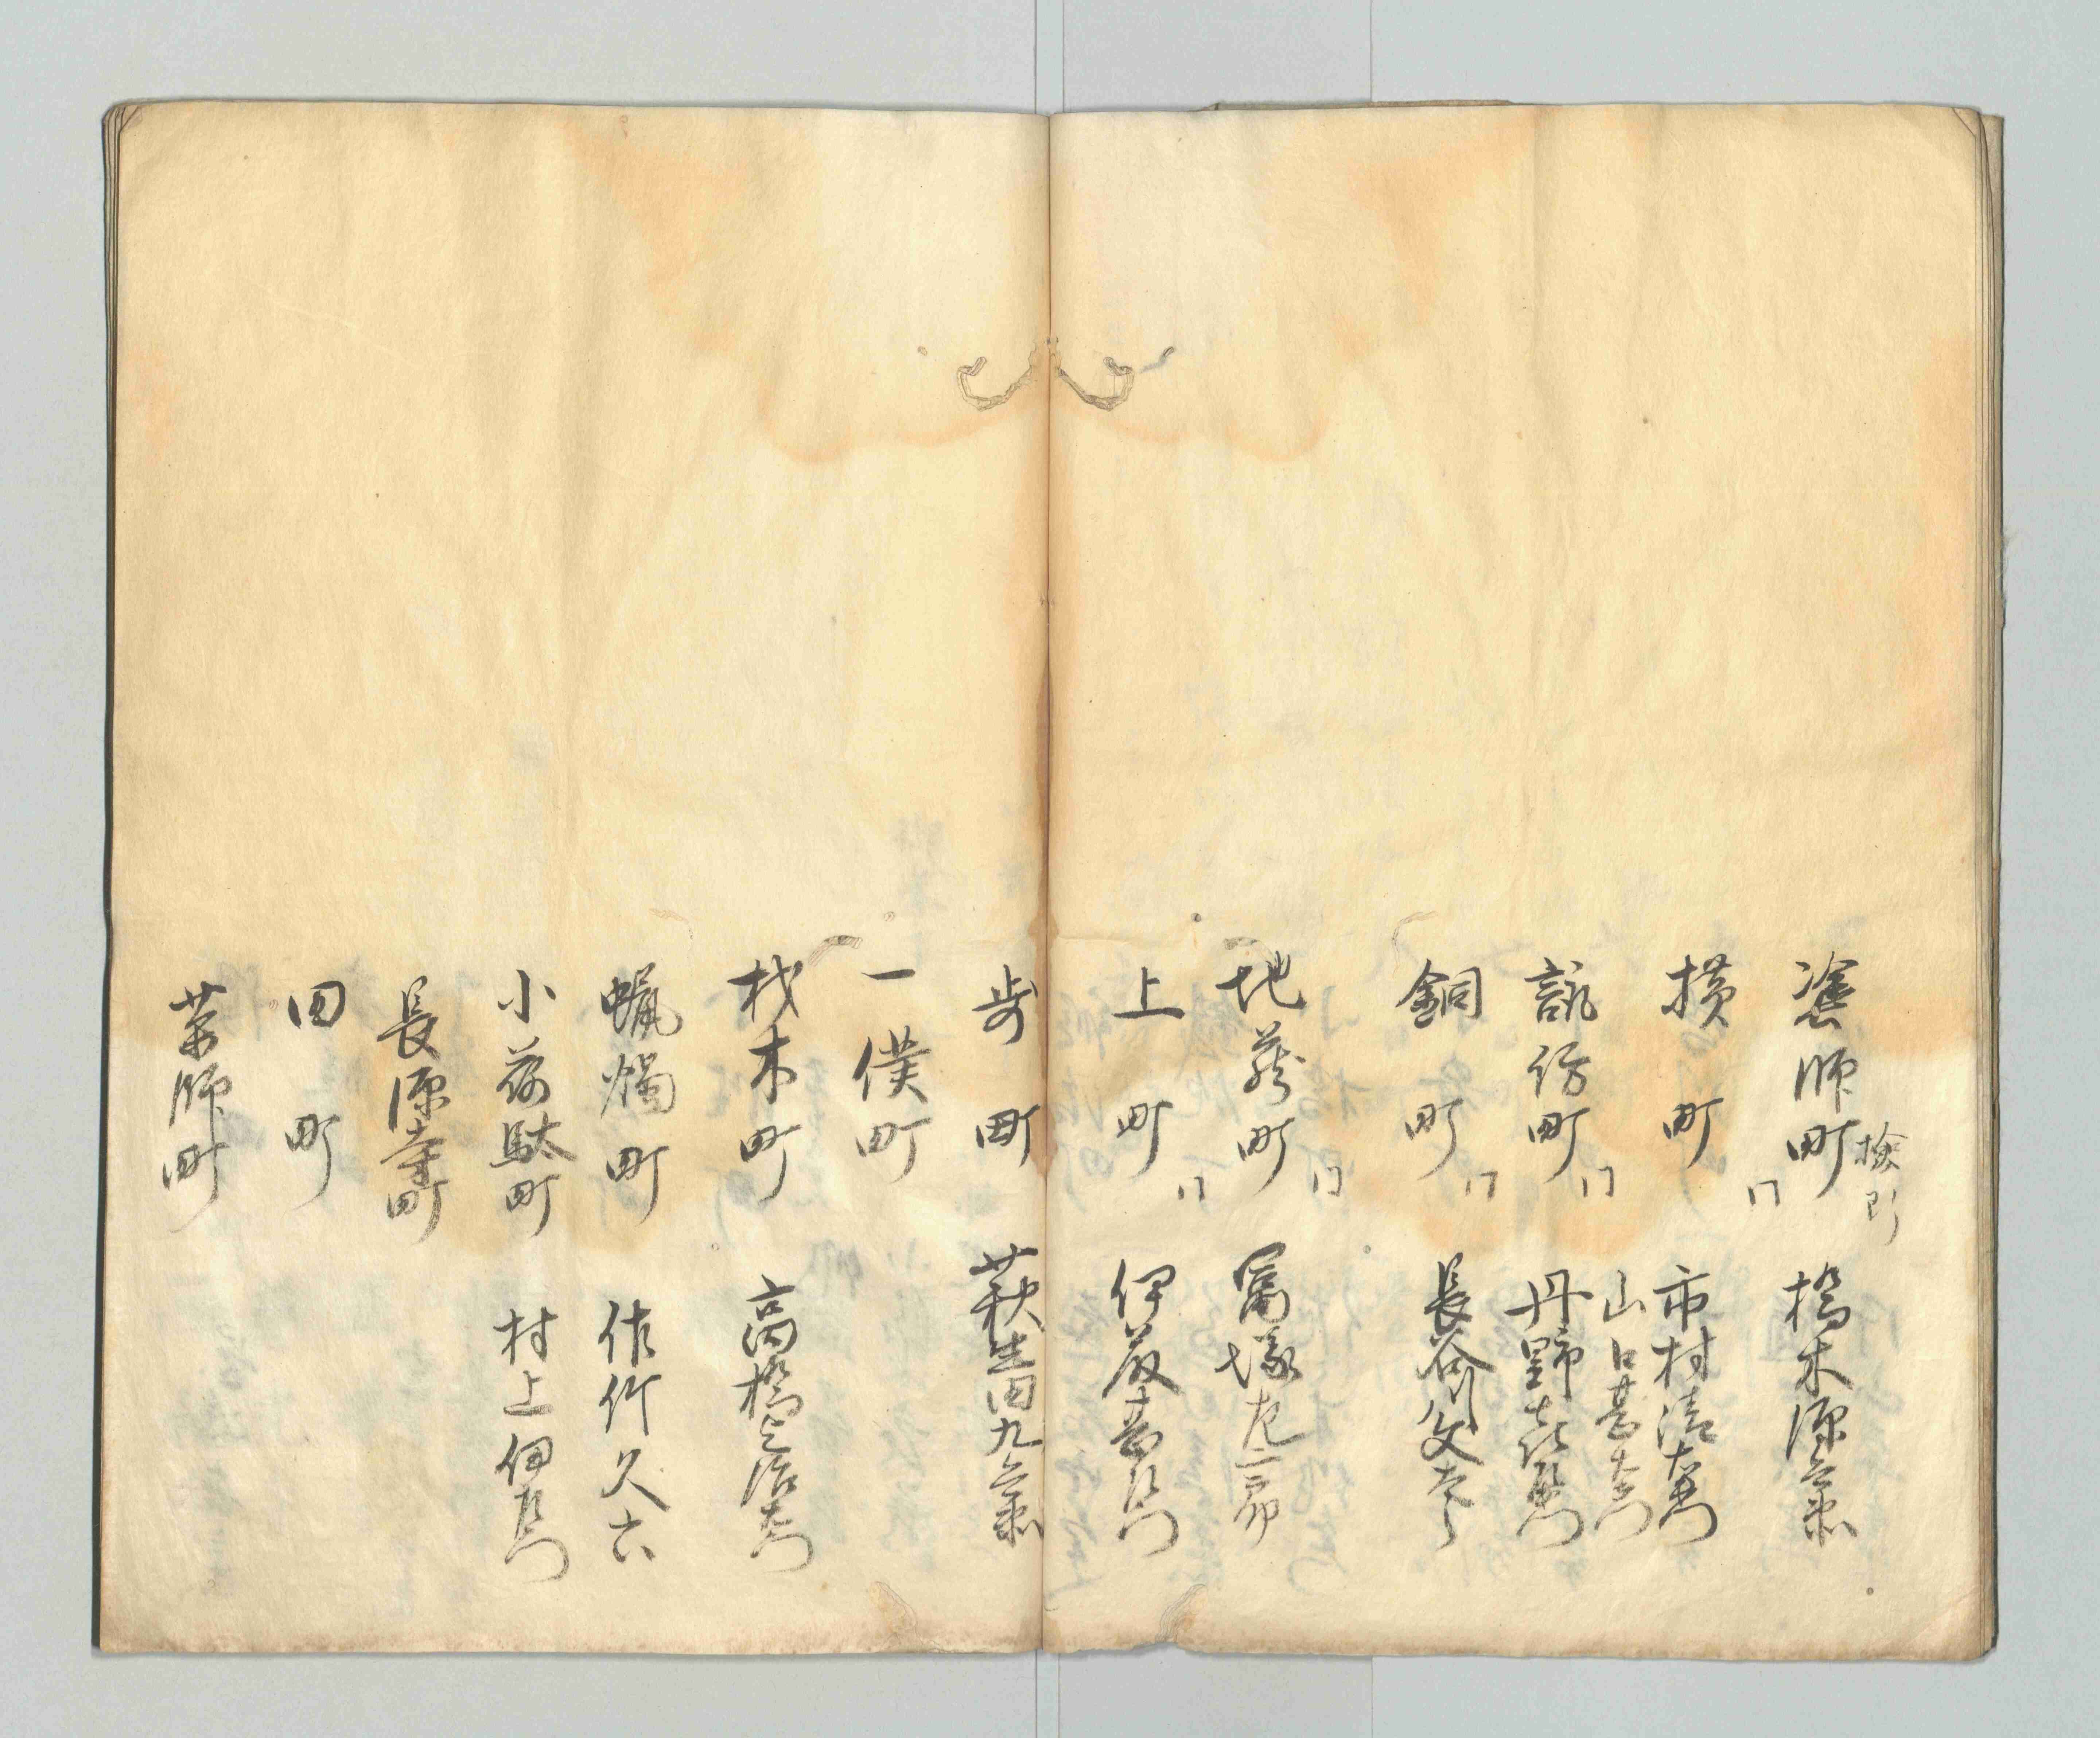 塗師町 橋本源六郎
検断
横町 市村清右衛門
山口甚右衛門
諏訪町 丹野喜兵衛
銅町 長谷川文吉
地蔵町 冨塚左一郎
上町 伊藤甚右衛門
歩町 萩生田九六郎
一僕町
材木町 高橋与治右衛門
蝋燭町 佐竹久六
小荷駄町 村上伊左衛門
長源寺町
田町
薬師町